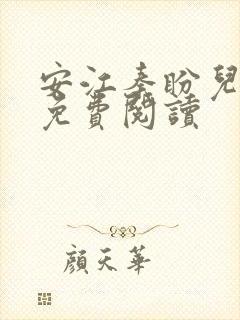 安江秦盼兒
免費閱讀
顏天華